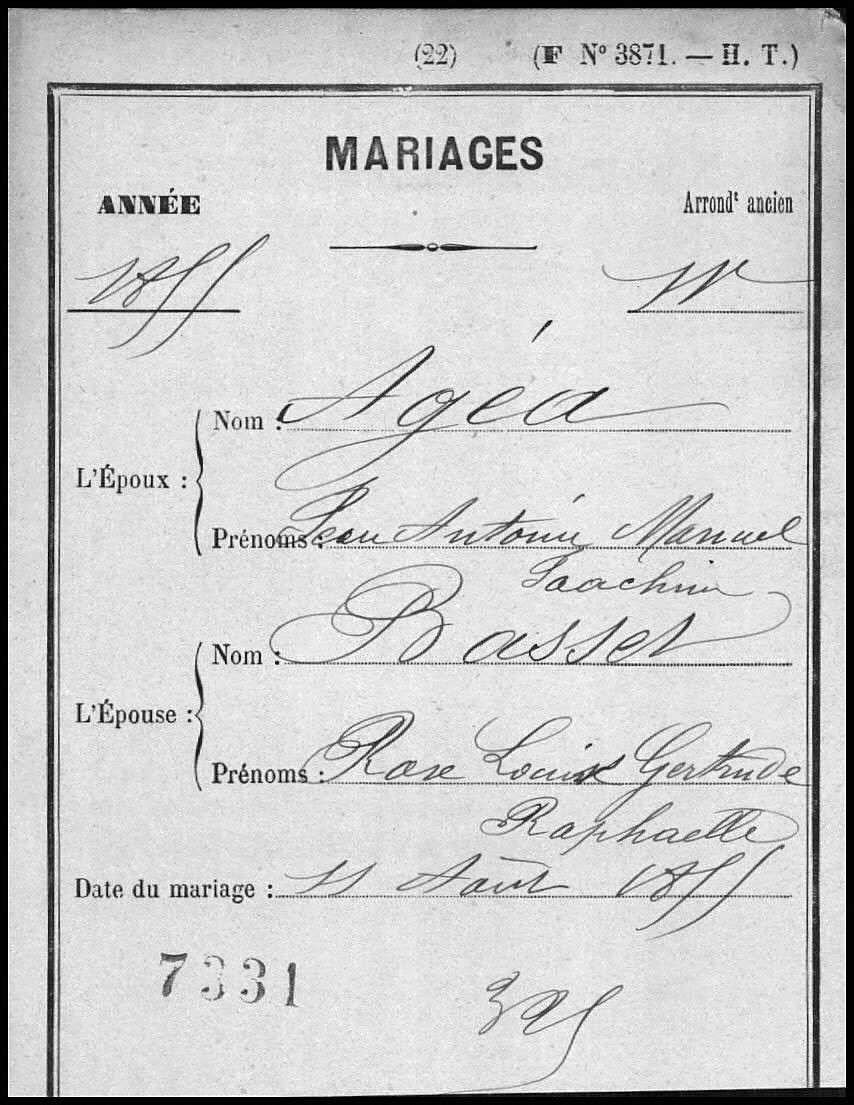 (22) (F N° 3871. — H. T.)
MARIAGES
ANNÉE Arrondt ancien
1855
L'Époux :
Nom : Agéa
Prénoms : Jean Antoine Manuel
Joachim
L'Épouse :
Nom : Basset
Prénoms : Rose Louise Gertrude
Raphaelle
Date du mariage : 11 Août 1855
7331